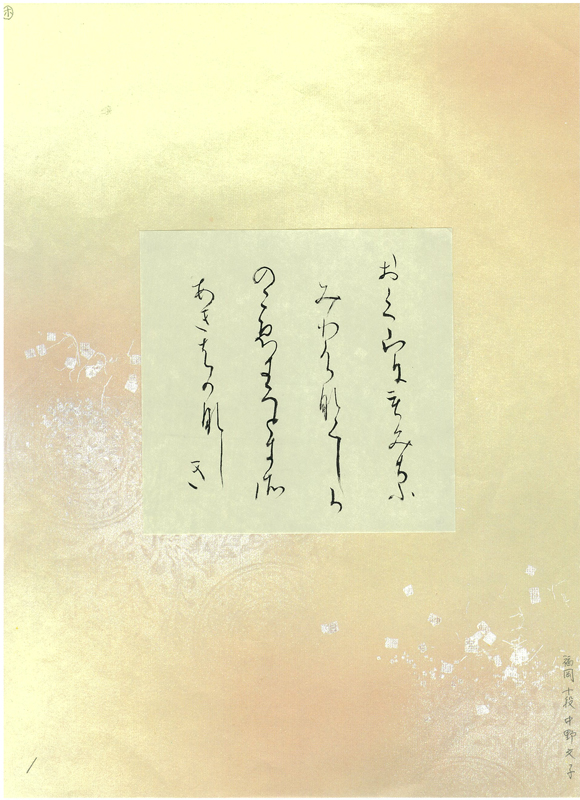 おく山にもみちふ
みわけ那くしか
のこ恵きくとき所
あきはか那しき
福岡 十段 中野文子